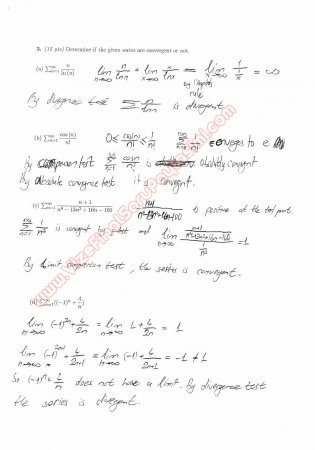 3. (15 pts) Determine if the given series are convergent or not.
(a) ∑ n/ln(n)
lim n→∞ n/ln n = lim x→∞ x/ln x = lim x→∞ 1/(1/x) = ∞
by l'Hopital's
rule
By divergence test ∑ n/ln n is divergent
(b) ∑ cos(n)/n!
0 ≤ |cos(n)/n!| ≤ 1/n! ∑ 1/n! converges to e
By Comparison test ∑ cos n/n! is absolutely convergent
By Absolute convergence test it is convergent.
(c) ∑ (n+1)/
is positive at the
∑ 1/n² is convergent by p-test and lim n→∞ = 1
By limit comparison test, the series is convergent.
(d) ∑((-1)ⁿ + 4/n)
lim n→∞ (-1)²ⁿ + 4/2n = lim n→∞ 1 + 4/2n = 1
lim n→∞ + 4/2n+1 = lim n→∞ -1 + 4/2n+1 = -1 ≠ 1
So (-1)ⁿ + 4/n does not have a limit. By divergence test
the series is divergent.